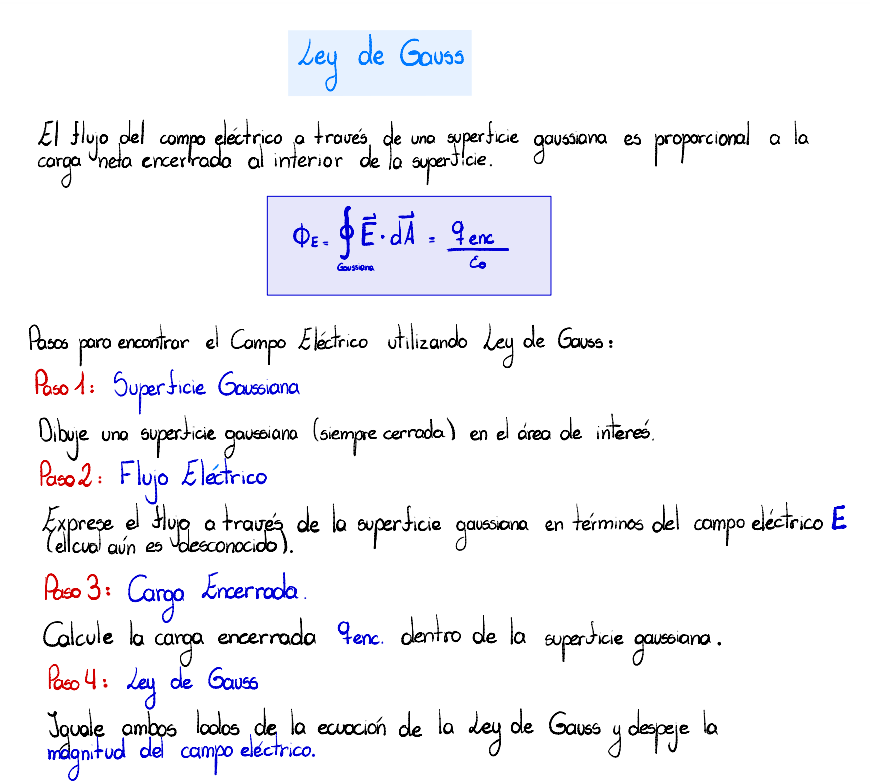 Ley de Gauss
El flujo del campo eléctrico a través de una superficie gaussiana es proporcional a la
carga neta encerrada al interior de la superficie.
Φ_E = ∮ E⃗ · dA⃗ = q enc / ε₀
Gaussiana
Pasos para encontrar el Campo Eléctrico utilizando Ley de Gauss:
Paso 1: Superficie Gaussiana
Dibuje una superficie gaussiana (siempre cerrada) en el área de interés.
Paso 2: Flujo Eléctrico
Exprese el flujo a través de la superficie gaussiana en términos del campo eléctrico E
(el cual aún es desconocido).
Paso 3: Carga Encerrada.
Calcule la carga encerrada qenc. dentro de la superficie gaussiana.
Paso 4: Ley de Gauss
Iguale ambos lados de la ecuación de la Ley de Gauss y despeje la
magnitud del campo eléctrico.